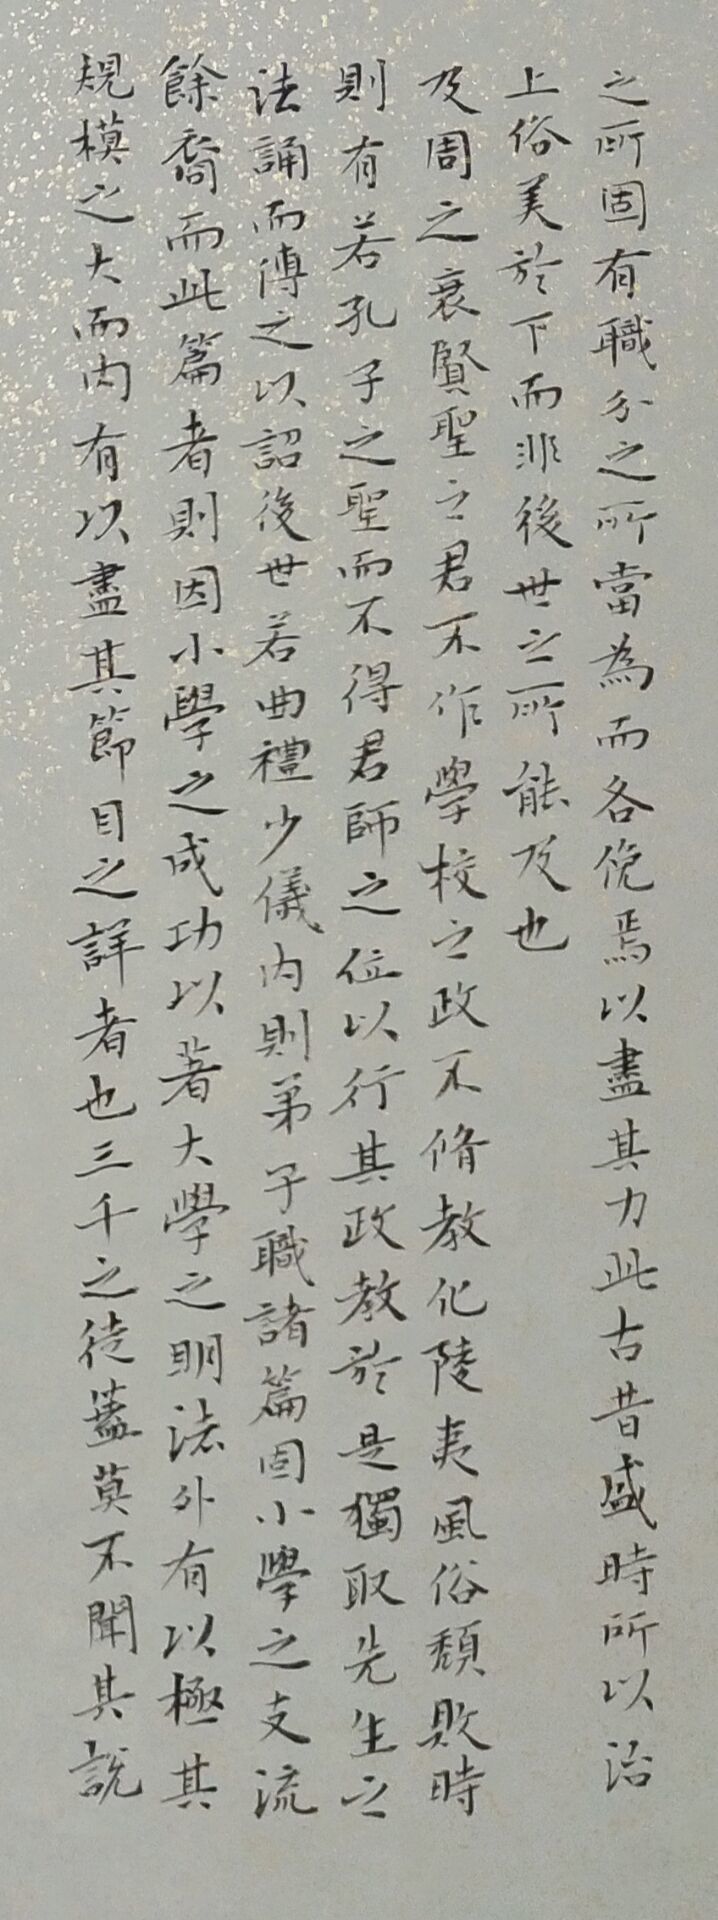 之所固有職分之所當為而各俛焉以盡其力此古昔盛時所以治
上俗美於下而非後世之所能及也
及周之衰賢聖之君不作學校之政不脩教化陵夷風俗頹敗時
則有若孔子之聖而不得君師之位以行其政教於是獨取先生之
法誦而傳之以詔後世若曲禮少儀內則弟子職諸篇固小學之支流
餘裔而此篇者則因小學之成功以著大學之明法外有以極其
規模之大而內有以盡其節目之詳者也三千之徒蓋莫不聞其說